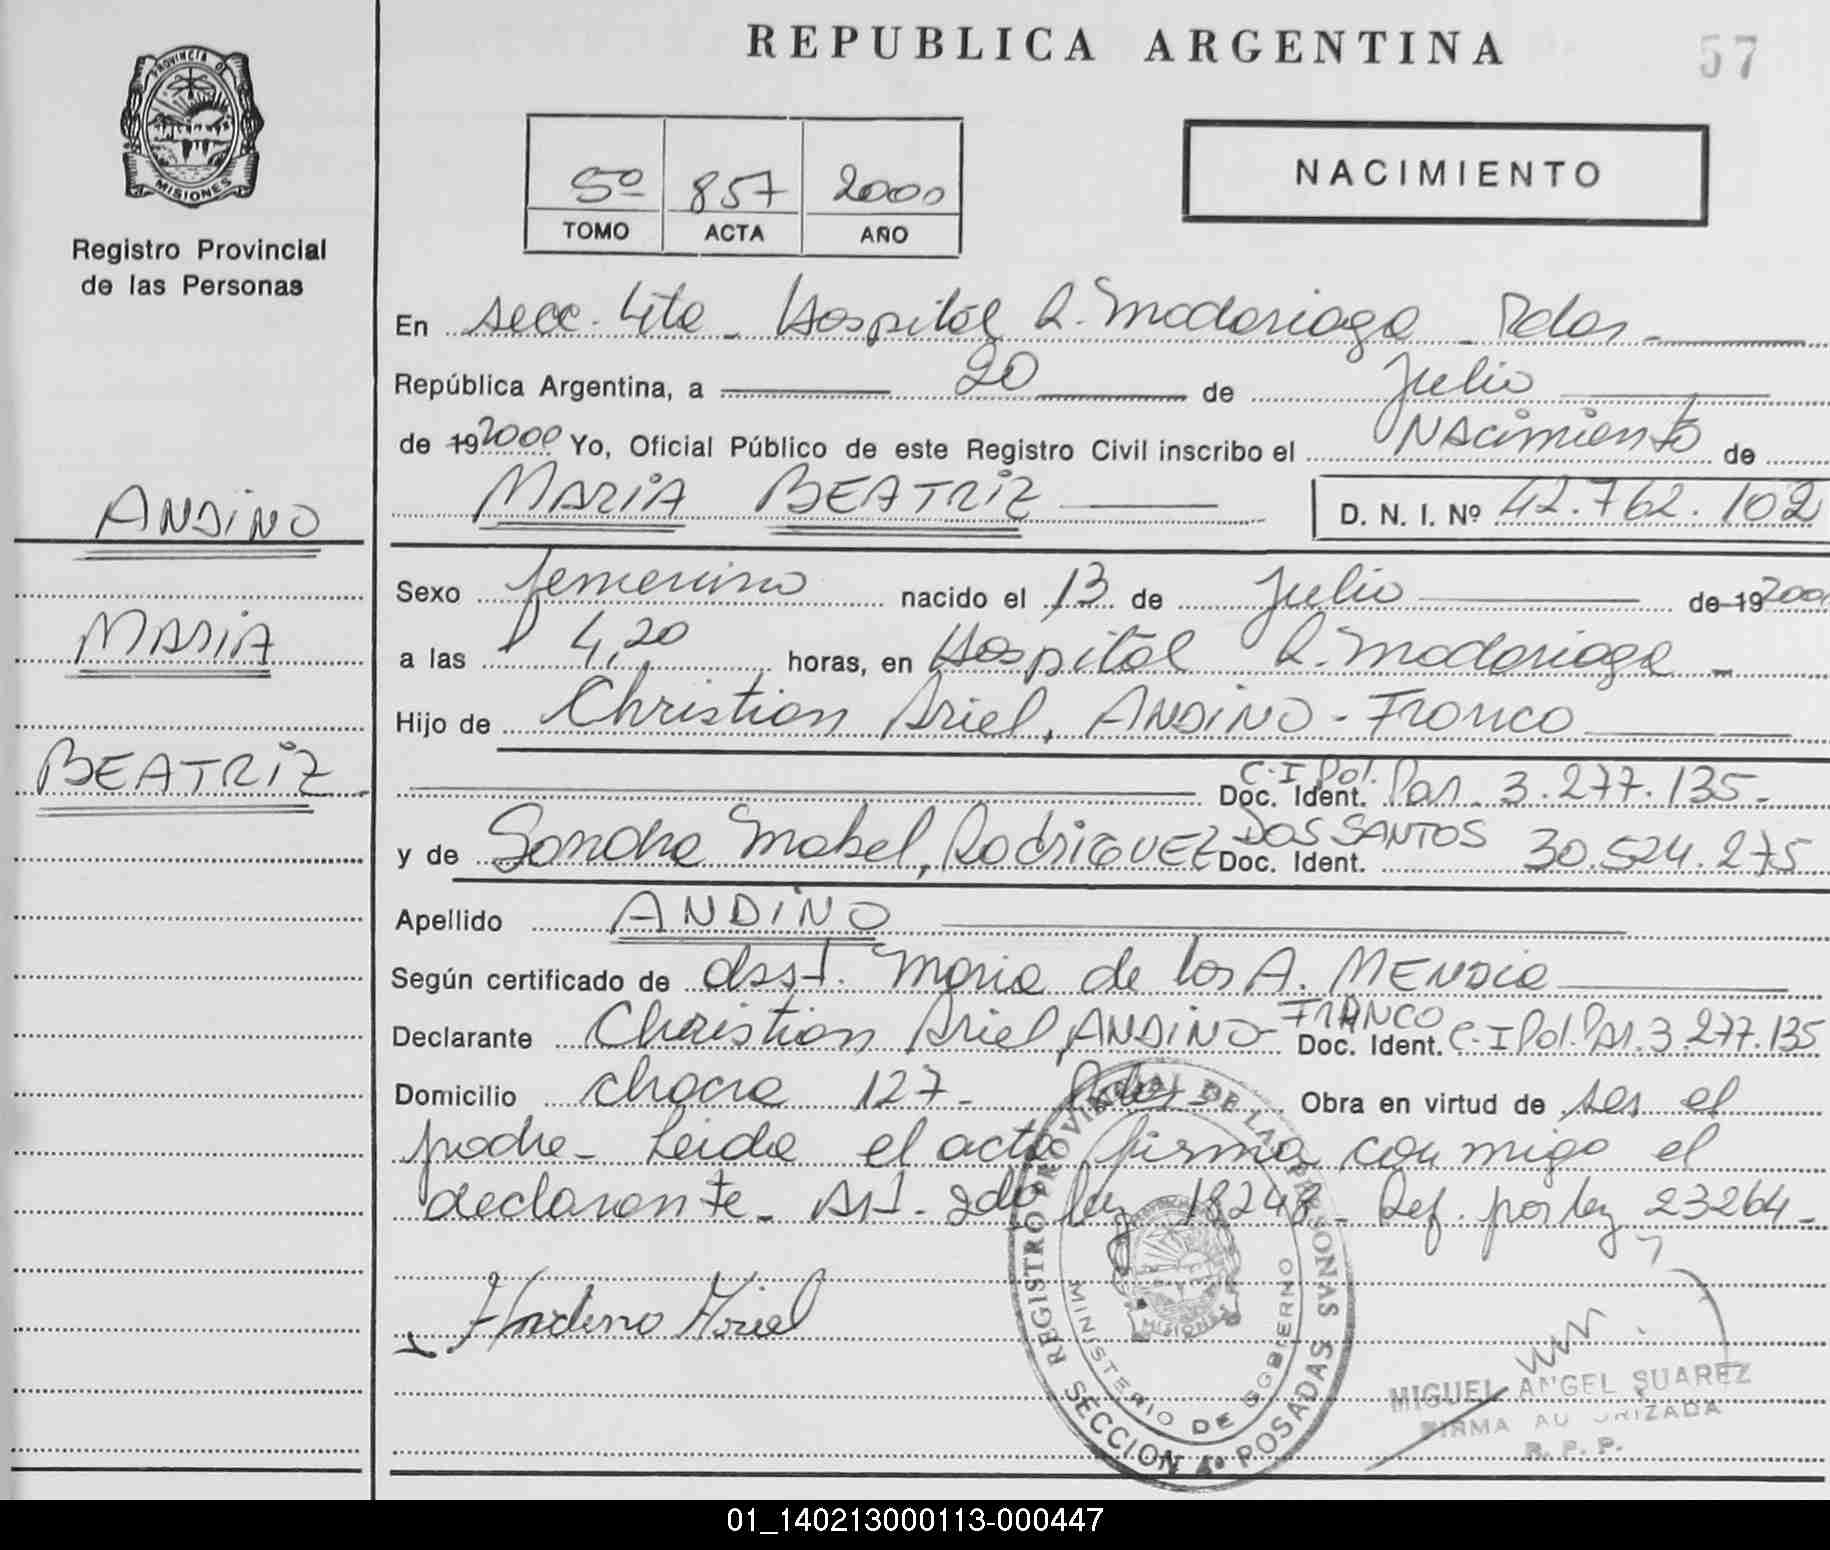 REPUBLICA ARGENTINA
57
PROVINCIA DE
MISIONES
Registro Provincial
de las Personas
5º 857 2000
TOMO ACTA AÑO
NACIMIENTO
En secc. 4ta - Hospital R. Madariaga - Pdas -
República Argentina, a 20 de Julio
de 19 2000 Yo, Oficial Público de este Registro Civil inscribo el Nacimiento de
MARIA BEATRIZ
D. N. I. Nº 42.762.102
ANDINO
MARIA
BEATRIZ
Sexo femenino nacido el 13 de Julio de 19 2000
a las 4,20 horas, en Hospital R. Madariaga -
Hijo de Christian Ariel, ANDINO - FRANCO
Doc. Ident. C.I Pol. Par. 3.277.135-
y de Sandra Mabel, RODRIGUEZ DOS SANTOS Doc. Ident. 30.524.275
Apellido ANDINO
Según certificado de obst. Maria de los A. MENDIE
Declarante Christian Ariel, ANDINO - FRANCO Doc. Ident. C.I Pol. Par. 3.277.135
Domicilio chacra 127 - Pdas - Obra en virtud de ser el
padre - Leida el acta firma conmigo el
declarante - Art. 2do ley 18248 - Ref. por ley 23264 -
Andino Ariel
REGISTRO PROVINCIAL DE LAS PERSONAS
MINISTERIO DE GOBIERNO
MISIONES
SECCION 4º POSADAS
MIGUEL ANGEL SUAREZ
FIRMA AUTORIZADA
R. P. P.
01_140213000113-000447